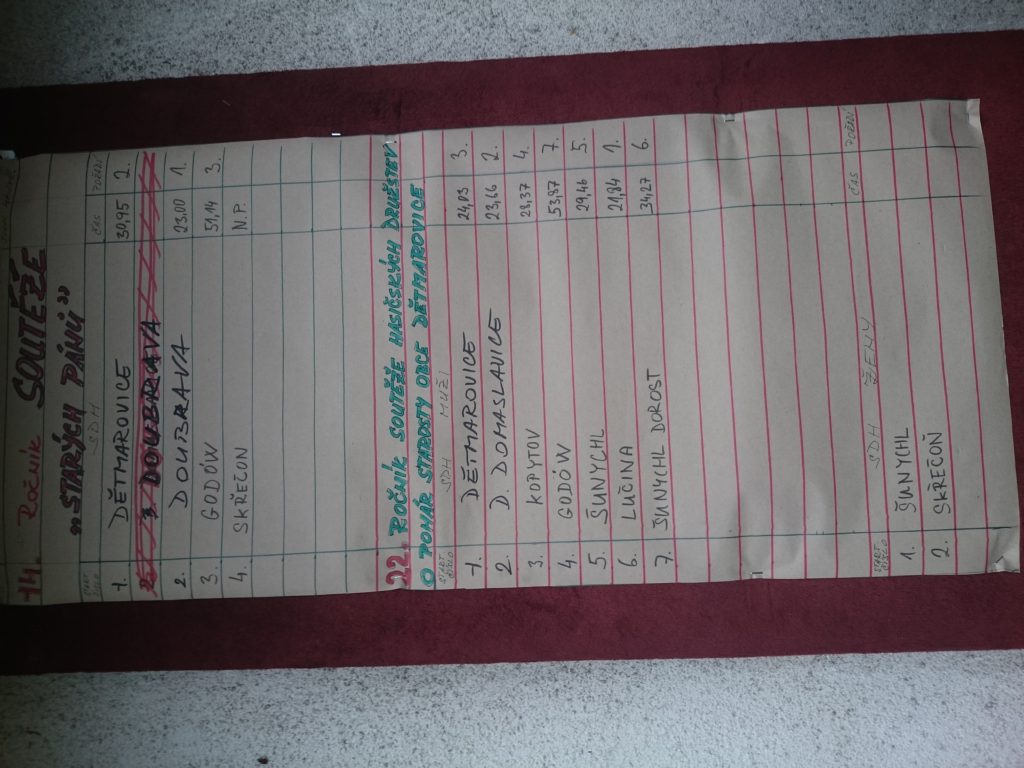 14. Ročník SOUTĚŽE
„STARÝCH PÁNŮ"
START ČÍSLO SDH ČAS POŘADÍ
1. DĚTMAROVICE 30,95 2.
2. DOUBRAVA
2. DOUBRAVA 23,00 1.
3. GODÓW 51,14 3.
4. SKŘEČON N.P.
22. ROČNÍK SOUTĚŽE HASIČSKÝCH DRUŽSTEV
O POHÁR STAROSTY OBCE DĚTMAROVICE
START ČÍSLO SDH MUŽI
1. DĚTMAROVICE 24,03 3.
2. D. DOMASLAVICE 23,66 2.
3. KOPYTOV 28,37 4.
4. GODÓW 53,87 7.
5. ŠUNYCHL 29,46 5.
6. LUČINA 21,84 1.
7. ŠUNYCHL DOROST 34,27 6.
START ČÍSLO SDH ŽENY ČAS POŘADÍ
1. ŠUNYCHL
2. SKŘEČOŇ